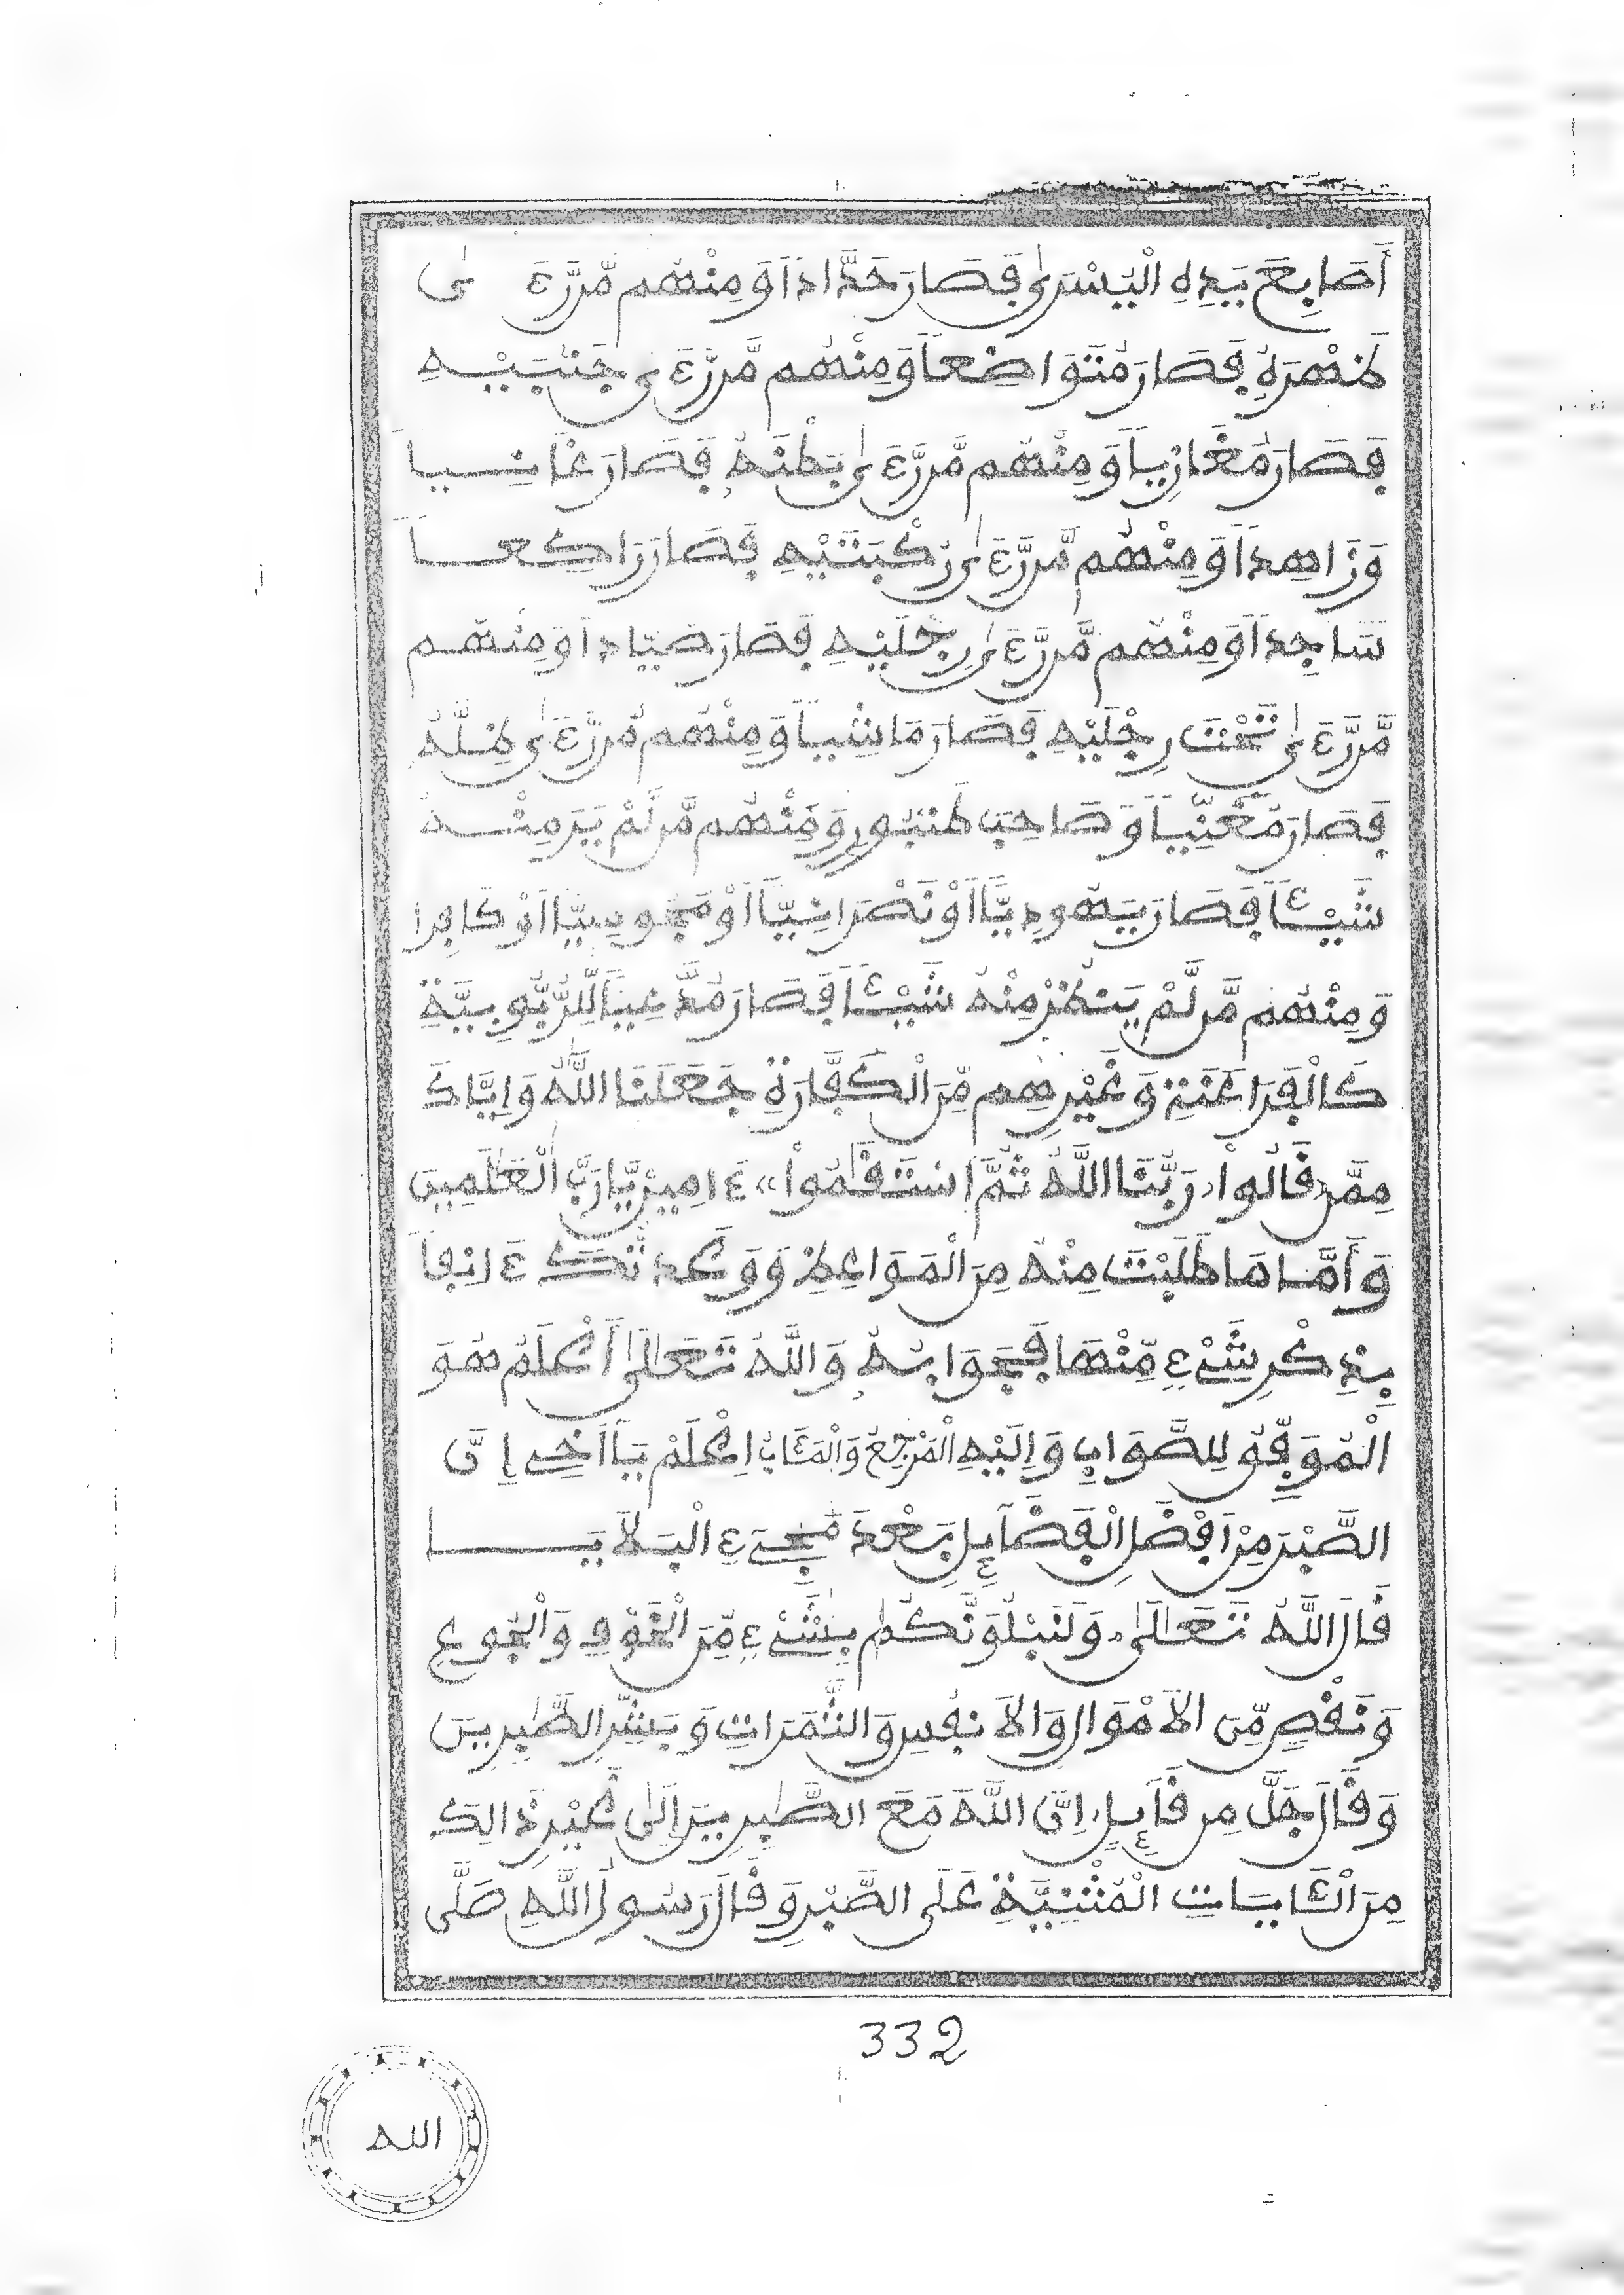 أَصَابِعَ يَدِهِ الْيُسْرَىٰ فَصَارَ حَدَّاداً وَمِنْهُم مَّن رَّءَىٰ
ظَهْرَهُ فَصَارَ مُتَوَاضِعاً وَمِنْهُم مَّن رَّءَىٰ جَنْبَيْهِ
فَصَارَ مُغَازِياً وَمِنْهُم مَّن رَّءَىٰ بَطْنَهُ فَصَارَ غَانِياً
وَزَاهِداً وَمِنْهُم مَّن رَّءَىٰ رُكْبَتَيْهِ فَصَارَ رَاكِعاً
سَاجِداً وَمِنْهُم مَّن رَّءَىٰ رِجْلَيْهِ فَصَارَ صَيَّاداً وَمِنْهُم
مَّن رَّءَىٰ تَحْتَ رِجْلَيْهِ فَصَارَ مَاشِياً وَمِنْهُم مَّن رَّءَىٰ ظِلَّهُ
فَصَارَ مُغَنِّياً وَصَاحِبَ طُنْبُورٍ وَمِنْهُم مَّن لَّمْ يَرَ مِنْهُ
شَيْئاً فَصَارَ يَهُودِيّاً أَوْ نَصْرَانِيّاً أَوْ مَجُوسِيّاً أَوْ كَافِراً
وَمِنْهُم مَّن لَّمْ يَنظُرْ مِنْهُ شَيْئاً فَصَارَ مُدَّعِياً لِّلرُّبُوبِيَّةِ
كَالْفَرَاعِنَةِ وَغَيْرِهِم مِّنَ الْكُفَّارَةِ جَعَلَنَا اللَّهُ وَإِيَّاكَ
مِمَّن «قَالُوا رَبُّنَا اللَّهُ ثُمَّ اسْتَقَٰمُوا» ءَامِينْ يَا رَبَّ الْعَٰلَمِينَ
وَأَمَّا مَا طَلَبْتَ مِنْهُ مِنَ الْمَوَاعِظِ وَوَعَدتُّكَ ءَانِفاً
بِذِكْرِ شَيْءٍ مِّنْهَا فَجَوَابُهُ وَاللَّهُ تَعَالَىٰ أَعْلَمُ هُوَ
الْمُوَفِّقُ لِلصَّوَابِ وَإِلَيْهِ الْمَرْجِعُ وَالْمَـَٔابُ اِعْلَمْ يَا أَخِي إِنَّ
الصَّبْرَ مِنْ أَفْضَلِ الْفَضَآئِلِ بَعْدَ مَجِيءِ الْبَلَايَا
قَالَ اللَّهُ تَعَالَىٰ وَلَنَبْلُوَنَّكُم بِشَيْءٍ مِّنَ الْخَوْفِ وَالْجُوعِ
وَنَقْصٍ مِّنَ الْأَمْوَالِ وَالْأَنفُسِ وَالثَّمَرَاتِ وَبَشِّرِ الصَّٰبِرِينَ
وَقَالَ جَلَّ مِن قَآئِلٍ إِنَّ اللَّهَ مَعَ الصَّٰبِرِينَ إِلَىٰ غَيْرِ ذَالِكَ
مِنَ الْـَٔايَاتِ الْمُثْنِيَّةِ عَلَى الصَّبْرِ وَقَالَ رَسُولُ اللَّهِ صَلَّى
332
الله